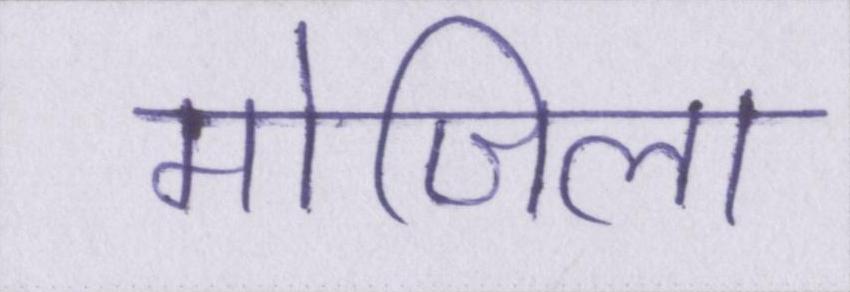 मोजिला